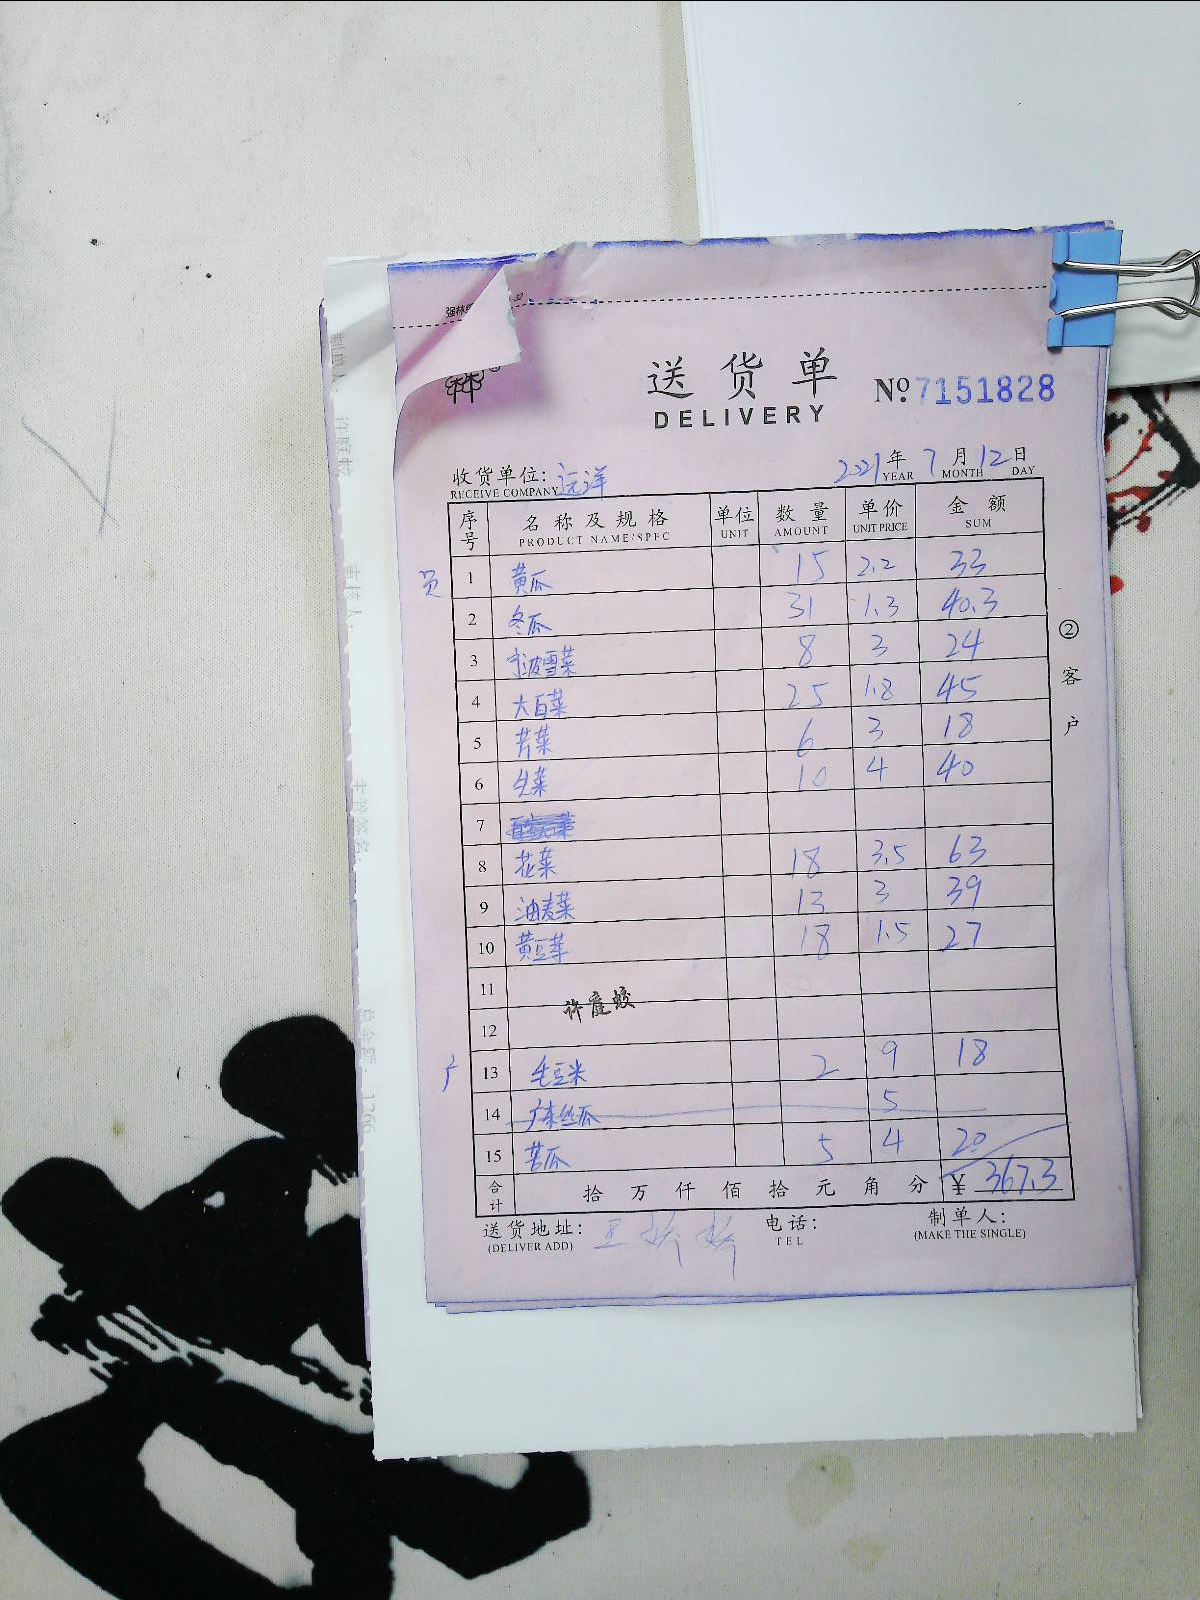 强林
送货单
DELIVERY
№ 7151828
收货单位: 远洋
RECEIVE COMPANY
2021年7月12日
YEAR MONTH DAY
序号 名称及规格 单位 数量 单价 金额
PRODUCT NAME/SPFC UNIT AMOUNT UNIT PRICE SUM
员 1 黄瓜 15 2.2 33
2 冬瓜 31 1.3 40.3
3 8 3 24
4 大白菜 25 1.8 45
5 芹菜 6 3 18
6 生菜 10 4 40
7
8 花菜 18 3.5 63
9 油麦菜 13 3 39
10 黄豆芽 18 1.5 27
11
许庭蛟
12
13 毛豆米 2 9 18
14 广东丝瓜 5
15 苦瓜 5 4 20
合计 拾万仟佰拾元角分 ¥367.3
送货地址: 电话: 制单人:
(DELIVER ADD) TEL (MAKE THE SINGLE)
②客户